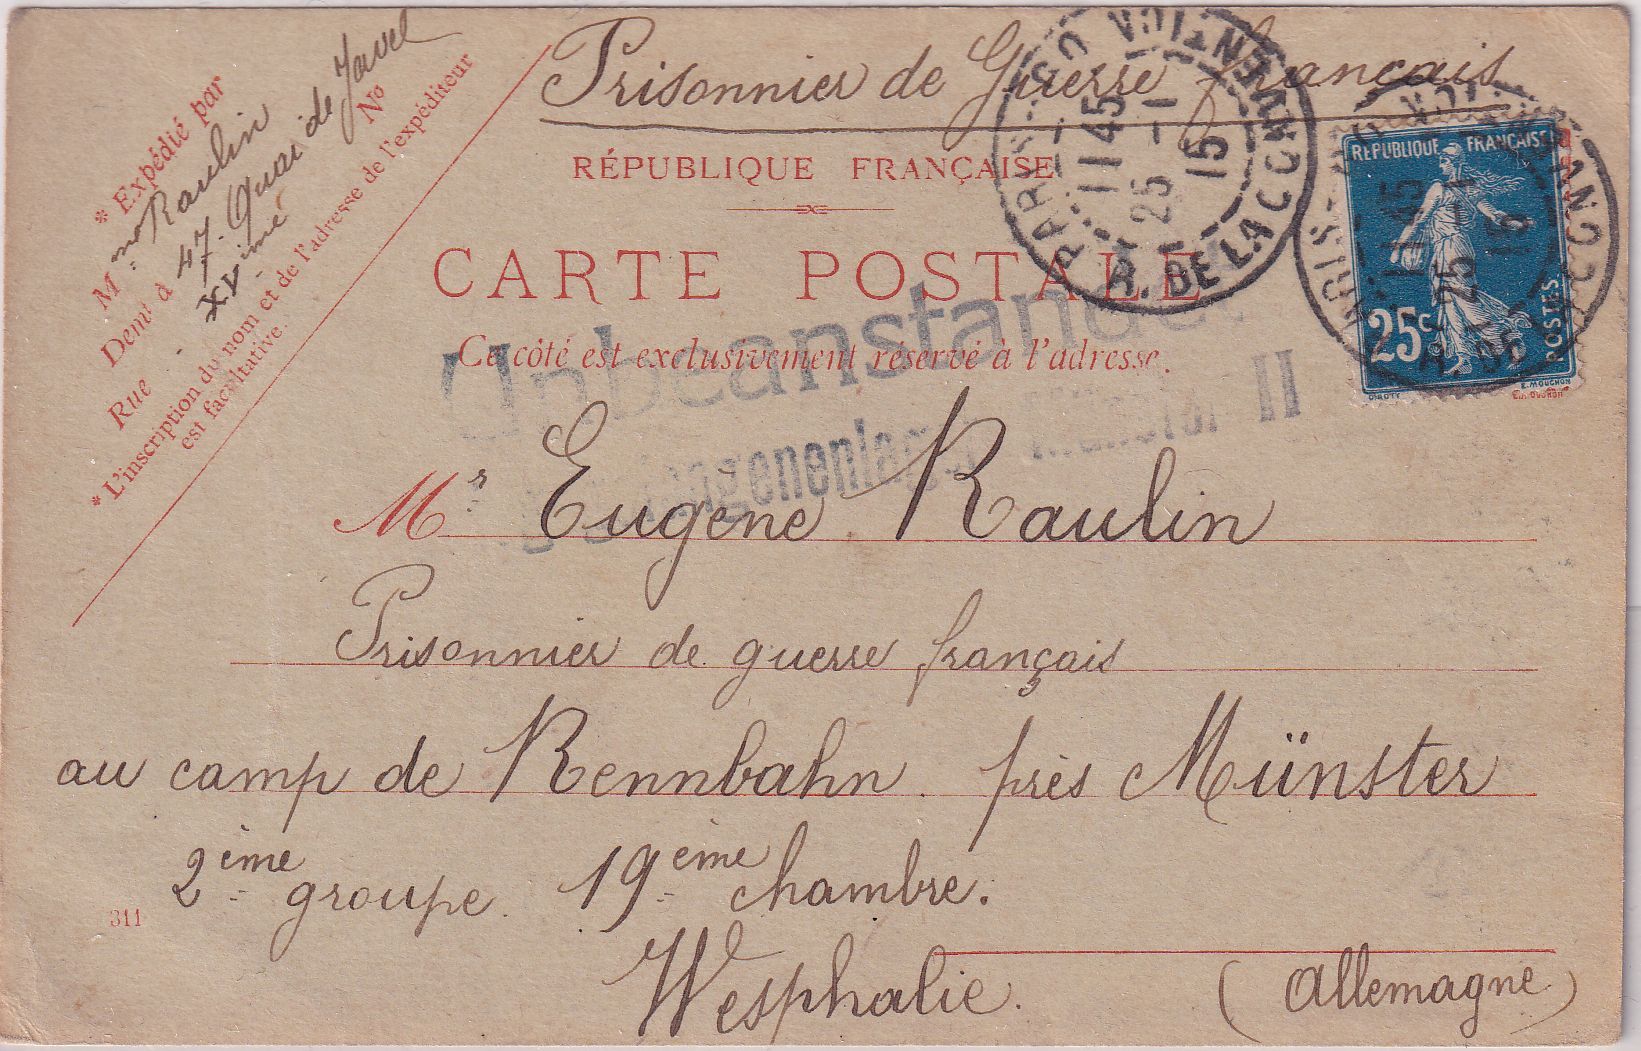 Prisonnier de Guerre français
* Expédié par
Mme Raulin
Demt à 47. Quai de Javel
Rue XVimé No
* L'inscription du nom et de l'adresse de l'expéditeur
est facultative.
RÉPUBLIQUE FRANÇAISE
CARTE POSTALE
Ce côté est exclusivement réservé à l'adresse.
PARIS
11 45
25 -1
15
R. DE LA CONVENTION
RÉPUBLIQUE FRANÇAISE
25c
POSTES
E. MOUCHON
11 45
25 -1
15
Unbeanstandet
II
Mr Eugène Raulin
Prisonnier de guerre français
au camp de Rennbahn. près Münster
2ème groupe. 19ème chambre.
311
Westphalie. (Allemagne)